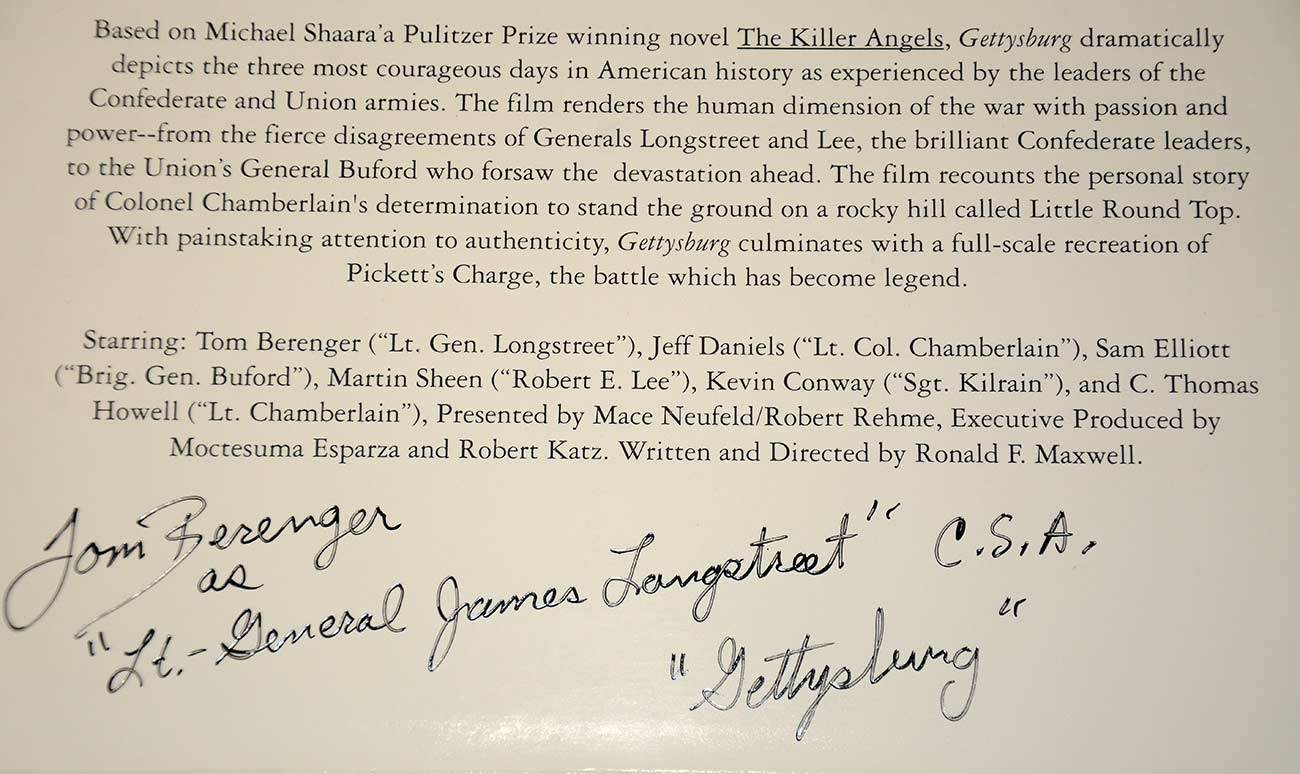 Based on Michael Shaara'a Pulitzer Prize winning novel The Killer Angels, Gettysburg dramatically
depicts the three most courageous days in American history as experienced by the leaders of the
Confederate and Union armies. The film renders the human dimension of the war with passion and
power--from the fierce disagreements of Generals Longstreet and Lee, the brilliant Confederate leaders,
to the Union's General Buford who forsaw the devastation ahead. The film recounts the personal story
of Colonel Chamberlain's determination to stand the ground on a rocky hill called Little Round Top.
With painstaking attention to authenticity, Gettysburg culminates with a full-scale recreation of
Pickett's Charge, the battle which has become legend.
Starring: Tom Berenger (“Lt. Gen. Longstreet”), Jeff Daniels (“Lt. Col. Chamberlain”), Sam Elliott
(“Brig. Gen. Buford”), Martin Sheen (“Robert E. Lee”), Kevin Conway (“Sgt. Kilrain”), and C. Thomas
Howell (“Lt. Chamberlain”), Presented by Mace Neufeld/Robert Rehme, Executive Produced by
Moctesuma Esparza and Robert Katz. Written and Directed by Ronald F. Maxwell.
Tom Berenger
as
"Lt.-General James Longstreet" C.S.A.
"Gettysburg"